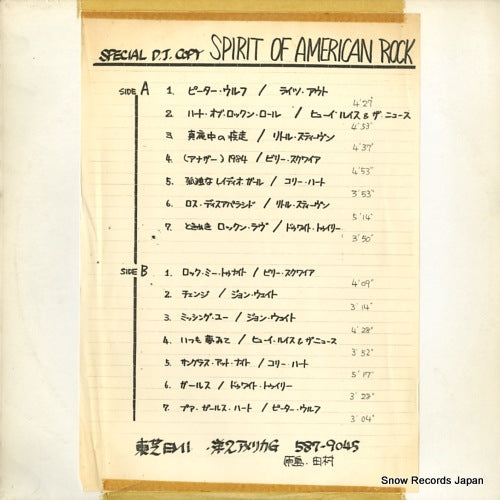 SPECIAL D.J. COPY SPIRIT OF AMERICAN ROCK
SIDE A 1. ピーター・ウルフ / ライツ・アウト 4'27"
2. ハート・オブ・ロックン・ロール / ヒューイ・ルイス & ザ・ニュース 4'53"
3. 真夜中の疾走 / リトル・スティーヴン 4'37"
4. (アナザー) 1984 / ビリー・スクワイア 4'53"
5. 孤独なレイディオガール / コリー・ハート 3'53"
6. ロス・デスアパラシドス / リトル・スティーヴン 5'14"
7. ときめきロックン・ラヴ / ドゥワイト・トゥイリー 3'50"
SIDE B 1. ロック・ミー・トゥナイト / ビリー・スクワイア 4'09"
2. チェンジ / ジョン・ウェイト 3'14"
3. ミッシング・ユー / ジョン・ウェイト 4'28"
4. いつも夢みて / ヒューイ・ルイス & ザ・ニュース 3'52"
5. サングラス・アット・ナイト / コリー・ハート 5'17"
6. ガールズ / ドゥワイト・トゥイリー 3'23"
7. プア・ガールズ・ハート / ピーター・ウルフ 3'04"
東芝EMI 洋2アメリカG 587-9045
田村
Snow Records Japan